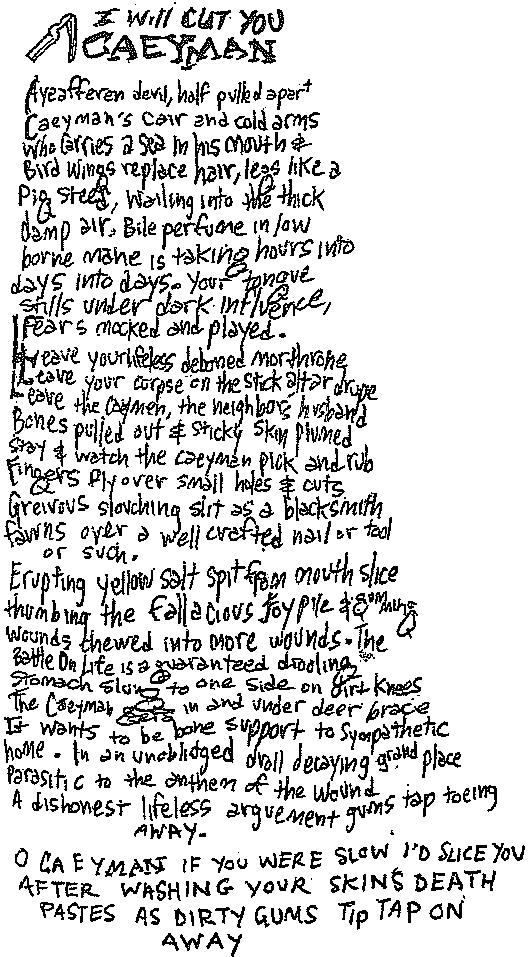 I WILL CUT YOU
CAEYMAN
Ayeafferen devil, half pulled apart
Caeyman's cair and cold arms
who carries a sea in his mouth &
Bird wings replace hair, legs like a
Pig steed, wailing into the thick
damp air. Bile perfume in low
borne mane is taking hours into
days into days. Your tongue
stills under dark influence,
fears mocked and played.
Leave your lifeless deboned mor throne
Leave your corpse on the stick altar drupe
Leave the Caeymen, the neighbors husband
Bones pulled out & sticky skin plumed
Stay & watch the caeyman pick and rub
Fingers fly over small holes & cuts
Greivous slouching sirt as a blacksmith
fawns over a well crafted nail or tool
or such.
Erupting yellow salt spit from mouth slice
thumbing the fallacious joy pile &
Wounds chewed into more wounds. The
Battle On Life is a guaranteed drooling
Stomach slung to one side on dirt knees
The Caeyman in and under deer brace
It wants to be bone support to sympathetic
home. In an unoblidged droll decaying grand place
Parasitic to the anthem of the wound
A dishonest lifeless arguement gums tap toeing
AWAY.
O CAEYMAN IF YOU WERE SLOW I'D SLICE YOU
AFTER WASHING YOUR SKINS DEATH
PASTES AS DIRTY GUMS TIP TAP ON
AWAY